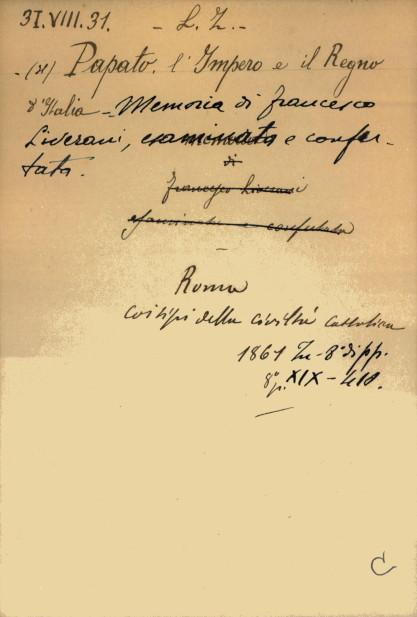 31.VIII.31. - L. Z. -
- (Il) Papato. l'Impero e il Regno
d'Italia - Memoria di Francesco
Liverani, esaminata e confu-
tata.
di
Francesco Liverani
esaminata e confutata
Roma
coi tipi della civiltà cattolica
1861 In-8° di pp.
8° p. XIX-418.
C